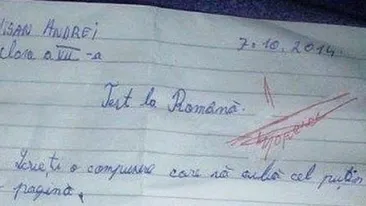 NISAN ANDREI
clasa a VII-a
7.10.2014.
Test la Română.
1
Scrieți o compunere care să aibă cel puțin
o pagină.